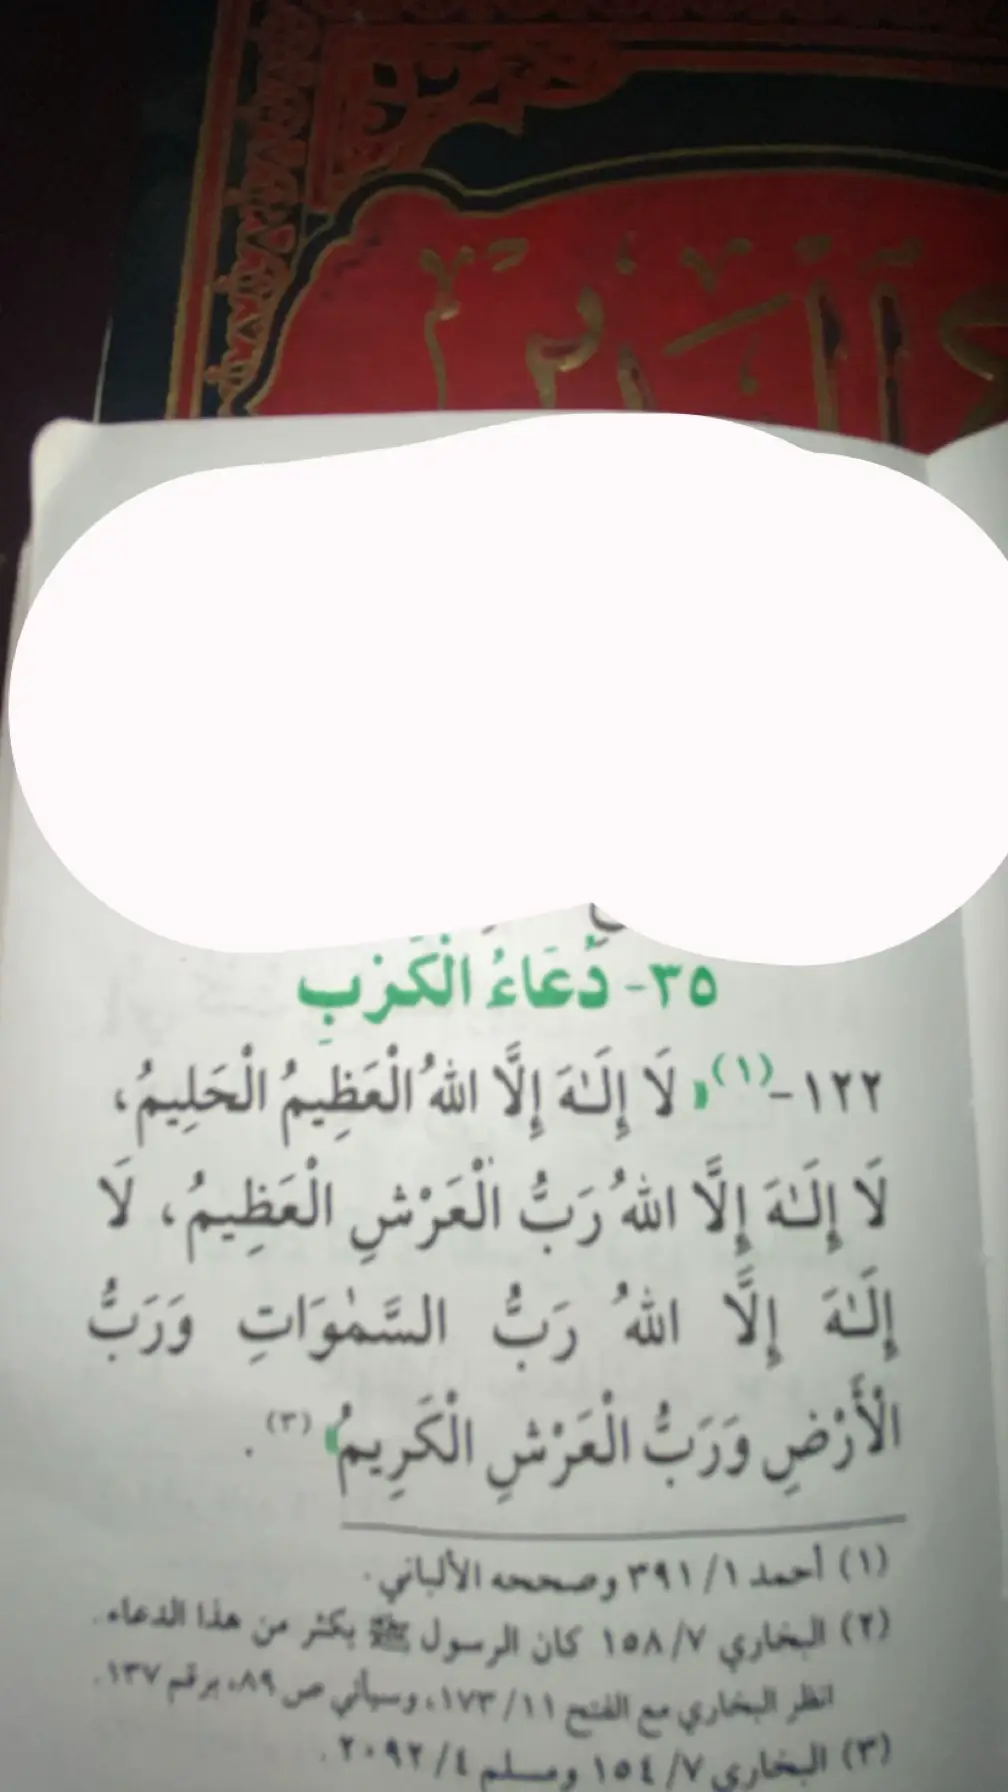 ٣٥- دُعَاءُ الْكَرْبِ
١٢٢-(١)« لَا إِلَـٰهَ إِلَّا اللهُ الْعَظِيمُ الْحَلِيمُ،
لَا إِلَـٰهَ إِلَّا اللهُ رَبُّ الْعَرْشِ الْعَظِيمُ، لَا
إِلَـٰهَ إِلَّا اللهُ رَبُّ السَّمٰوَاتِ وَرَبُّ
الْأَرْضِ وَرَبُّ الْعَرْشِ الْكَرِيمُ»(٣).
(١) أحمد ٣٩١/١ وصححه الألباني.
(٢) البخاري ١٥٨/٧ كان الرسول ﷺ يكثر من هذا الدعاء.
انظر البخاري مع الفتح ١٧٣/١١، وسيأتي ص ٨٩، برقم ١٣٧.
(٣) البخاري ١٥٤/٧ ومسلم ٢٠٩٢/٤.